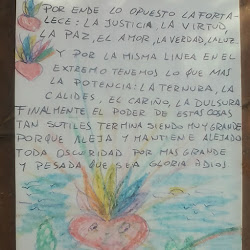 POR ENDE LO OPUESTO LA FORTA-
LECE: LA JUSTICIA, LA VIRTUD,
LA PAZ, EL AMOR, LA VERDAD, LA LUZ.
Y POR LA MISMA LINEA EN EL
EXTREMO TENEMOS LO QUE MAS
LA POTENCIA: LA TERNURA, LA
CALIDES, EL CARIÑO, LA DULSURA
FINALMENTE EL PODER DE ESTAS COSAS
TAN SUTILES TERMINA SIENDO MUY GRANDE
PORQUE ALEJA Y MANTIENE ALEJADO
TODA OSCURIDAD POR MAS GRANDE
Y PESADA QUE SEA GLORIA A DIOS